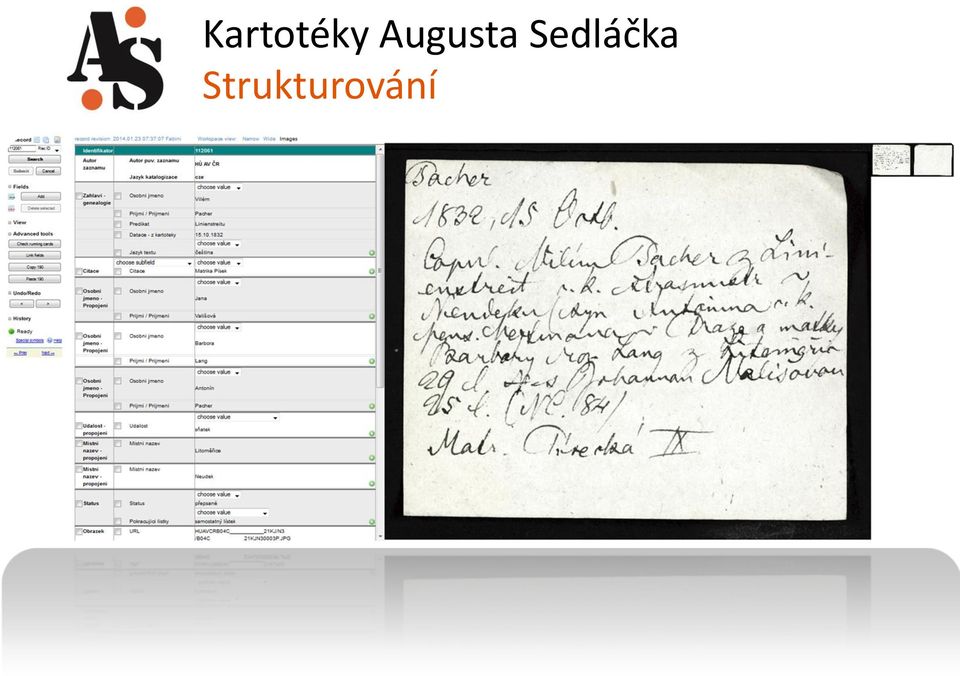 Kartotéky Augusta Sedláčka
Strukturování
AS
record revision 2014.01.23 07:37:07 Fabini Workspace view Narrow Wide Images
112061 Rec.ID
Search
Cancel
Fields
Add
Delete selected
View
Advanced tools
Check running cards
Link fields
Copy 190
Paste 190
Undo/Redo
< >
History
Ready
Special symbols Help
<< Prev Next >>
Identifikator 112061
Autor zaznamu Autor puv. zaznamu HÚ AV ČR
Jazyk katalogizace cze
choose value
Zahlavi - genealogie Osobni jmeno Vilém
Prijmi / Prijmeni Pacher
Predikat Linienstreitu
Datace - z kartoteky 15.10.1832
choose value
Jazyk textu čeština
choose subfield choose value
Citace Citace Matrika Písek
choose value
Osobni jmeno - Propojeni Osobni jmeno Jana
Prijmi / Prijmeni Vališová
choose value
Osobni jmeno - Propojeni Osobni jmeno Barbora
Prijmi / Prijmeni Lang
choose value
Osobni jmeno - Propojeni Osobni jmeno Antonín
Prijmi / Prijmeni Pacher
choose value
Udalost - propojeni Udalost sňatek
Mistni nazev - propojeni Mistni nazev Litoměřice
Mistni nazev - propojeni Mistni nazev Neudek
choose value
Status Status přepsané
choose value
Pokracujici listky samostatný lístek
Obrazek URL HUAVCRB04C 21KJ/N3
/B04C 21KJN30003P.JPG
Pacher
1832, 15 Octb.
Copul. Vilím Pacher z Lini-
enstreit r. k.
syn Antonína r. k.
a matky
Barbory roz. Lang z
29 l. Johannan Vališovou
25 l. (NC. 84)
Matr. Písecká IX